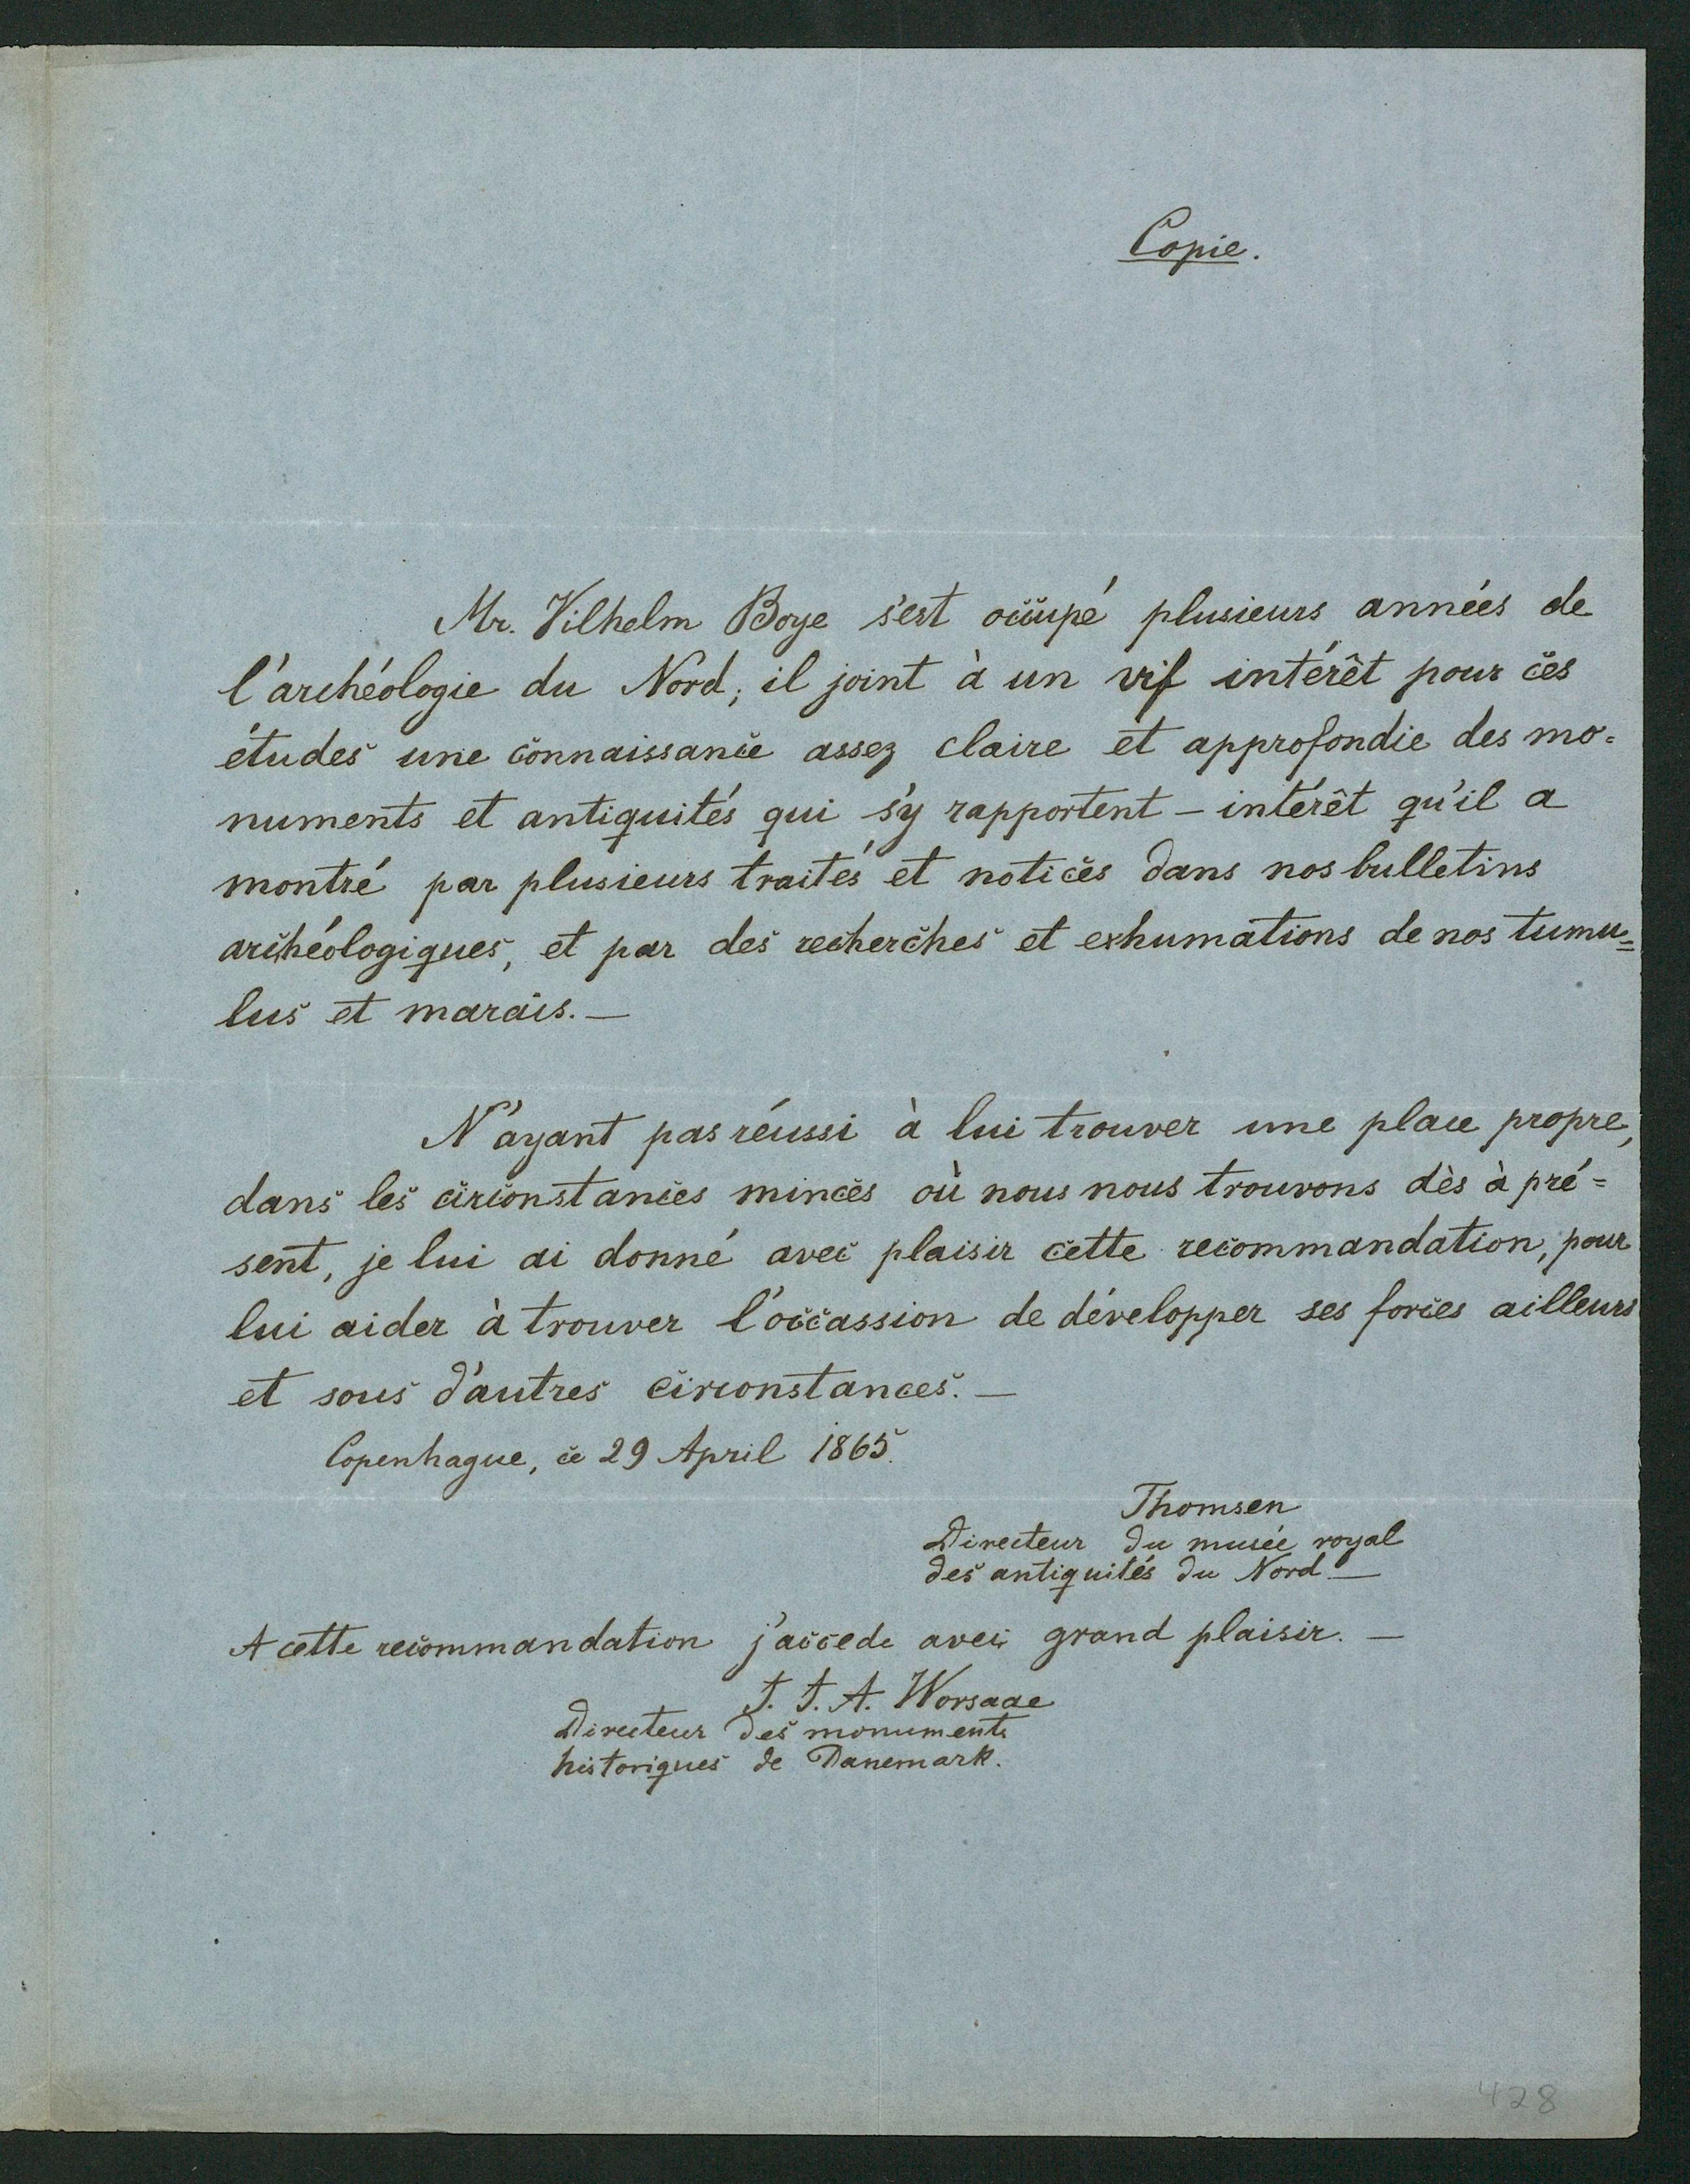 Copie.
Mr. Vilhelm Boye s'est occupé plusieurs années de
l'archéologie du Nord; il joint à un vif intérêt pour ces
études une connaissance assez claire et approfondie des mo=
numents et antiquités qui s'y rapportent – intérêt qu'il a
montré par plusieurs traités et notices dans nos bulletins
archéologiques, et par des recherches et exhumations de nos tumu=
lus et marais. —
N'ayant pas réussi à lui trouver une place propre,
dans les circonstances minces où nous nous trouvons dès à pré=
sent, je lui ai donné avec plaisir cette recommandation, pour
lui aider à trouver l'occassion de développer ses forces ailleurs
et sous d'autres circonstances. —
Copenhague, ce 29 April 1865.
Thomsen
Directeur du musée royal
des antiquités du Nord —
A cette recommandation j'accede avec grand plaisir. —
J. J. A. Worsaae
Directeur des monuments
historiques de Danemark.
428